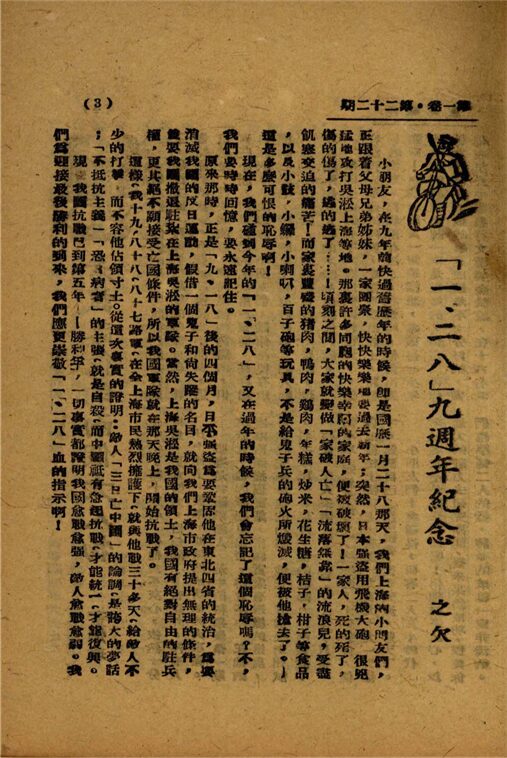 第一卷・第二十二期
(3)
「一、二八」九週年紀念
之欠
小朋友，在九年前快過舊歷年的時候，卽是國歷一月二十八那天，我們上海的小朋友們，
正跟着父母兄弟姊妹，一家團聚，快快樂樂地要過去新年；突然，日本强盜用飛機大砲，很兇
猛地攻打吳淞上海等地。那裏許多同胞的快樂幸福的家庭，便破壞了！一家人，死的死了，
傷的傷了，逃的逃了……！頃刻之間，大家就變做「家破人亡」「流落無靠」的流浪兒，受盡
飢寒交迫的痛苦！而家裏豐盛的猪肉，鴨肉，鷄肉，年糕，炒米，花生糖，桔子，柑子等食品
，以及小鼓，小鑼，小喇叭，百子砲等玩具，不是給鬼子兵的砲火所燬滅，便被他搶去了。！
這是多麼可恨的恥辱啊！
現在，我們碰到今年的「一、二八」，又在過年的時候，我們會忘記了這個恥辱嗎？不，
我們要時時回憶，要永遠記住。
原來那時，正是「九、一八」後的四個月，日本强盜爲要鞏固他在東北四省的統治，爲要
消滅我國的反日運動，假借一個鬼子和尙失蹤的名目，就向我們上海市政府提出無理的條件，
並要我國撤退駐紮在上海吳淞的軍隊。當然，上海吳淞是我國的領土，我國有絕對自由的駐兵
權，更其絕不願接受亡國條件，所以我國軍隊就在那天晚上，開始抗戰了。
這樣，我十九，八十八，八十七路軍，在全上海市民熱烈擁護下，就與他戰三十多天，給敵人不
少的打擊，而不容他佔領寸土。從這次事實的證明：敵人「三日亡中國」的論調，是誇大的夢話
；「不抵抗主義」「恐日病者」的主張，就是自殺。而中國祇有奮起抗戰，才能統一，才能復興。
現我國抗戰已到第五年——勝利年，一切事實都證明我國愈戰愈强，敵人愈戰愈弱。我
們爲迎接最後勝利的到來，我們應更崇敬「一、二八」血的指示啊！